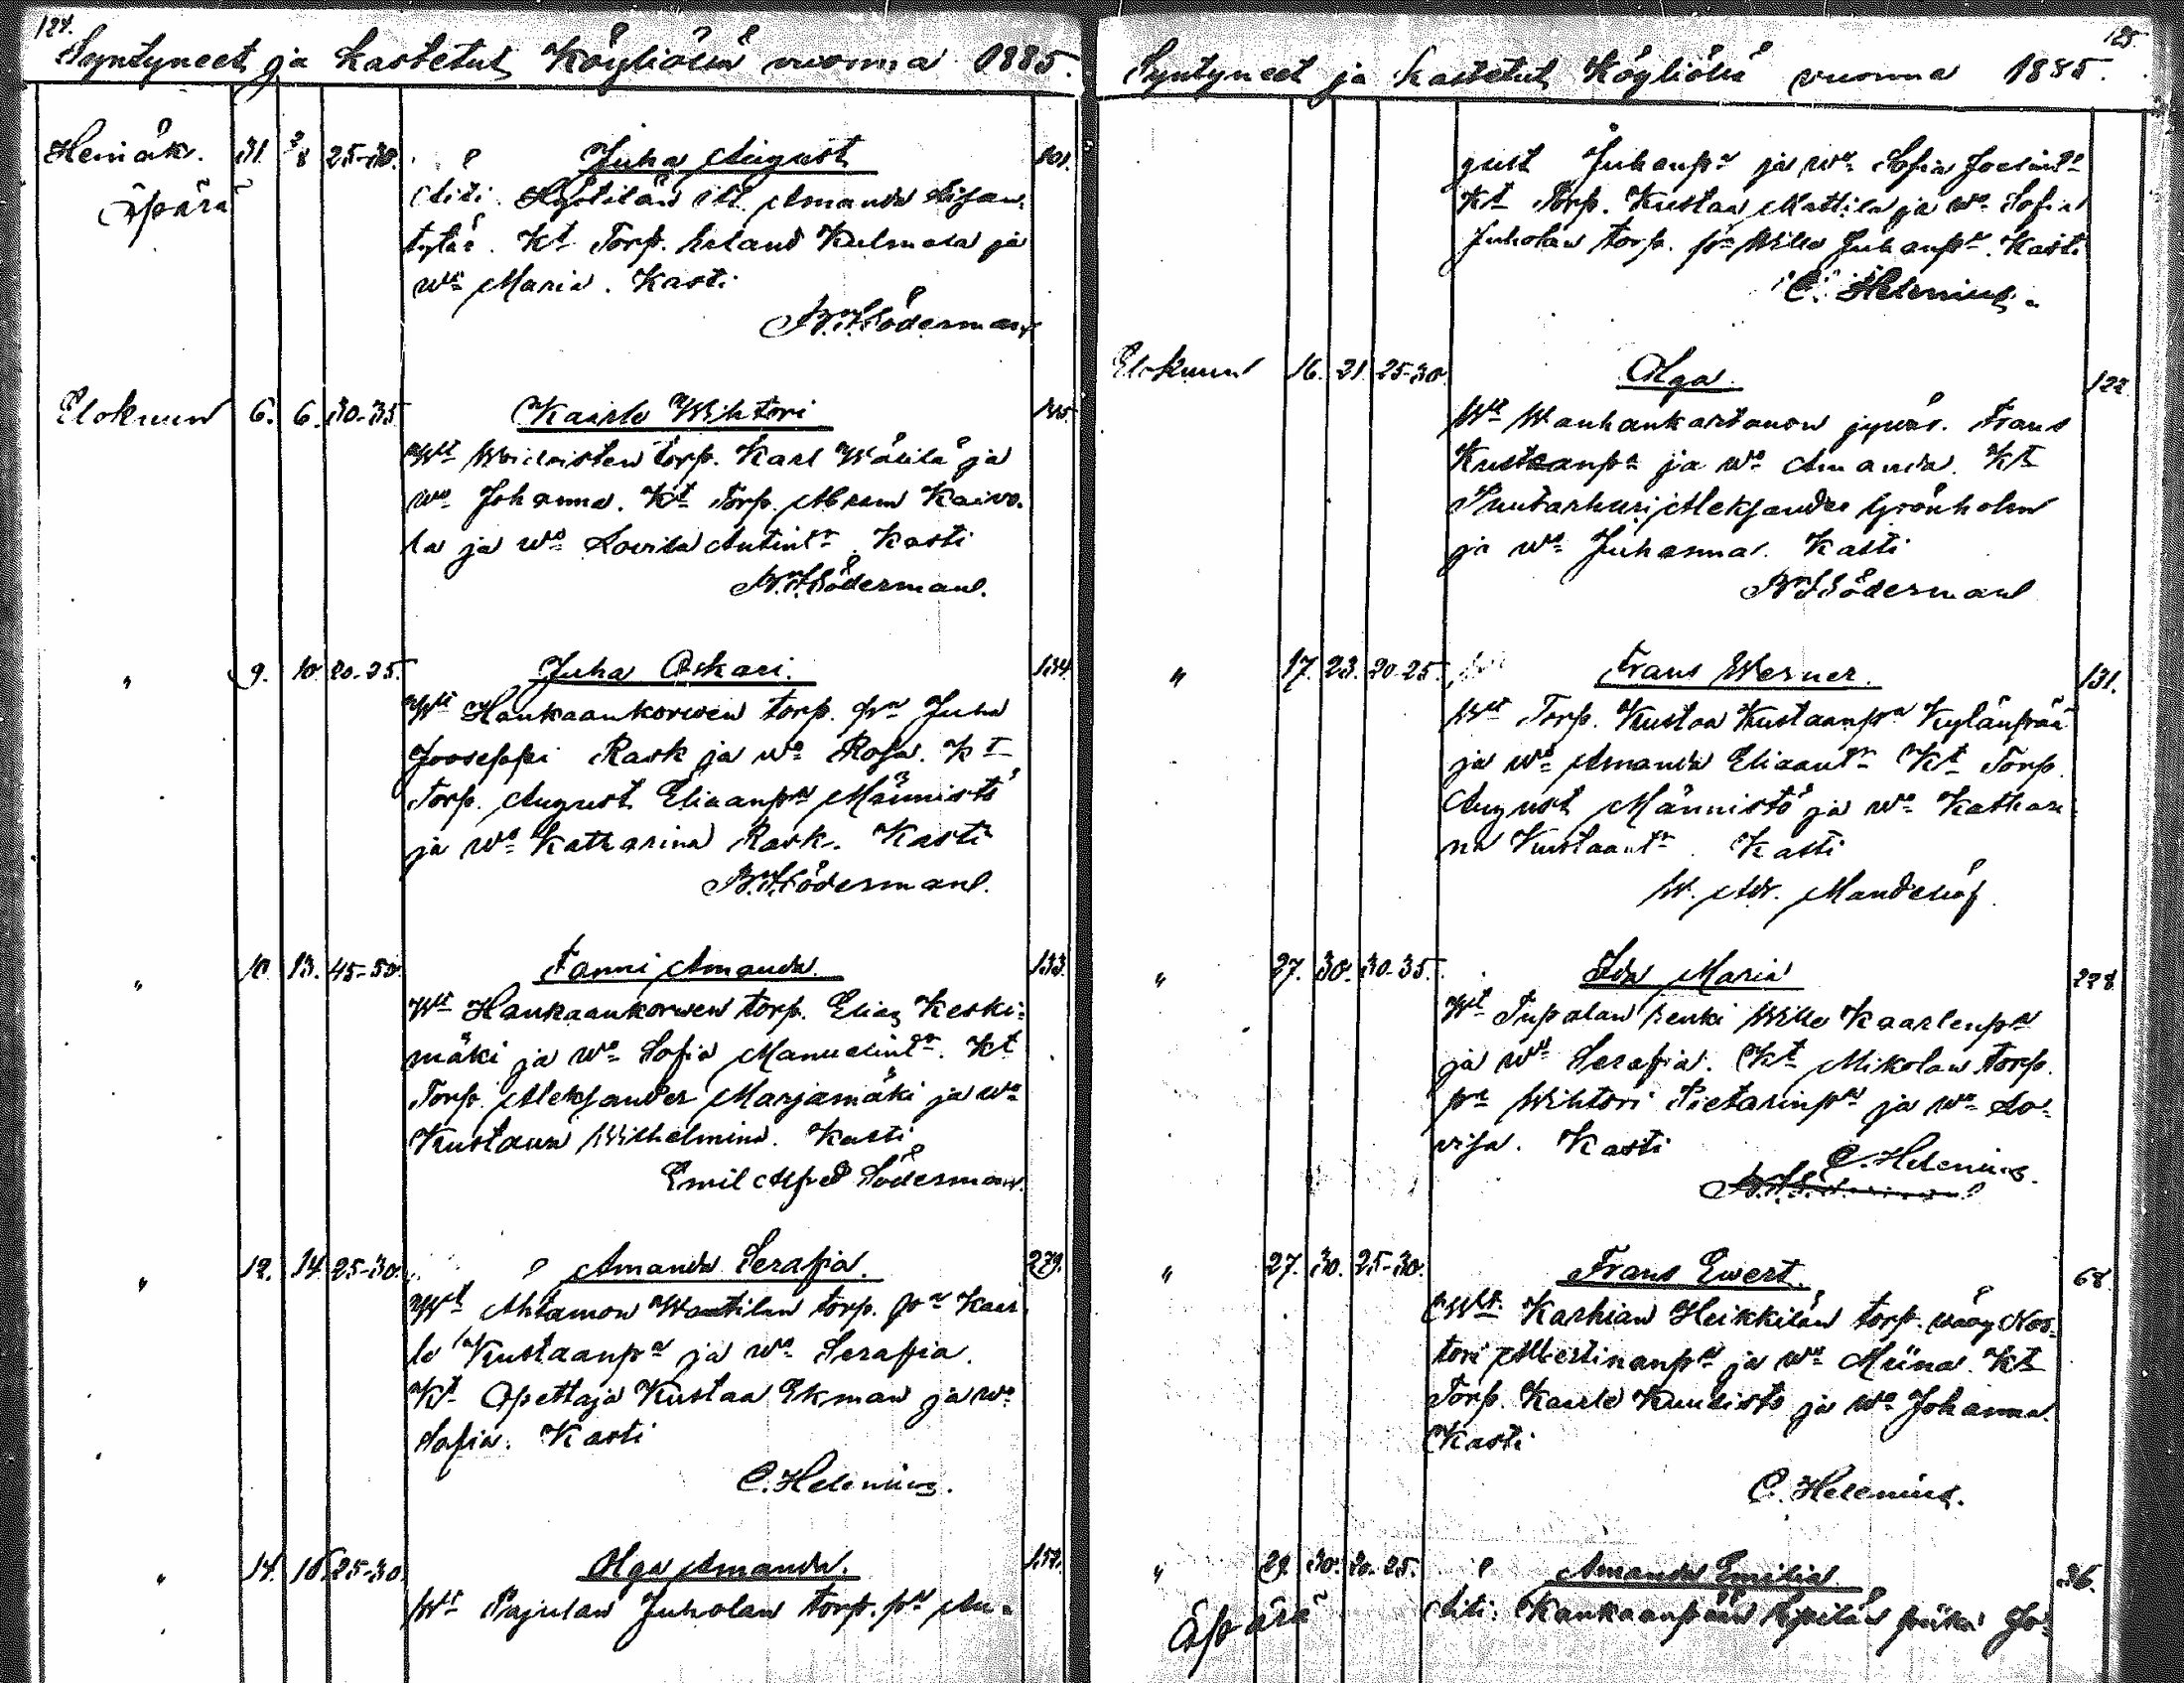 124.
Syntyneet ja kastetut Köyliössä vuonna 1885.
Heinäk. 31. 2/8 25-30. Juha August 101.
Äpärä Äiti. Itt. Amanda
tytär. Kt Torp. Erland Kulmala ja
wo Maria. Kasti
Söderman
Elokuun 6. 6. 30-35 Kaarle Wihtori
Wt torp. Karl Wälilä ja
wo Johanna. Kt Torp. Abram Kaivo-
la ja wo Lovisa Antint. Kasti
Söderman.
" 9. 10. 20-25. Juha Oskari. 134
Wt Haukaankorwen torp. pa Juha
Jooseppi Rask ja wo Rosa. Kt
Torp. August Eliaanpa Männistö
ja wo Katharina Rask. Kasti
Söderman.
" 10. 13. 45-50. Fanni Amanda. 133.
Wt Haukaankorwen torp. Elias Keski-
mäki ja wo Sofia Manuelint. Kt
Torp. Aleksander Marjamäki ja wo
Kustawa Wilhelmina. Kasti
Emil Alfred Söderman.
" 12. 14. 25-30. Amanda Serafia. 279.
Wt torp. pa Kaar-
le Kustaanpa ja wo Serafia.
Kt Opettaja Kustaa Ekman ja wo
Sofia. Kasti
C. Helenius.
" 14. 16. 25-30. Olga Amanda. 152.
Wt Pajulan Juholan torp. pa Au-
125
Syntyneet ja kastetut Köyliössä vuonna 1885.
gust Juhanpa ja wo Sofia
Kt Torp. Kustaa Mattila ja wo Sofia
Juholan torp. pa Wille Juhanpa. Kasti
C. Helenius.
Elokuun 16. 21. 25-30. Olga. 122
Wt Wanhankartanon jyväs. Frans
Kustaanpa ja wo Amanda. Kt
Puutarhuri Aleksander Grönholm
ja wo Juhanna. Kasti
Söderman
" 17. 23. 20-25. Frans Werner. 131.
Wt Torp. Kustaa Kustaanpa Kylänpää
ja wo Amanda Eliaant. Kt Torp.
August Männistö ja wo Kathari-
na Kustaant. Kasti
W. Mandelöf
" 27. 30. 30-35. Ida Maria 228
Wt Tupalan renki Wille Kaarlenpa
ja wo Serafia. Kt Mikolan torp.
pa Wihtori Pietarinpa ja wo Lo-
visa. Kasti
C. Helenius.
" 27. 30. 25-30. Frans Ewert. 68
Wt Karhian Heikkilän torp. wäwy Nes-
tori Albertinanpa ja wo Miina. Kt
Torp. Kaarle Kuusisto ja wo Johanna.
Kasti
C. Helenius.
" 29. 30. 20-25. Amanda Emilia 36.
Äpärä Äiti: Kankaanpään piika Jo-